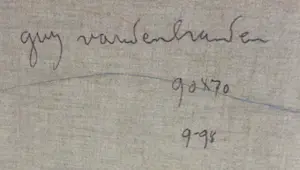 guy vandenbranden
90x70
9-98